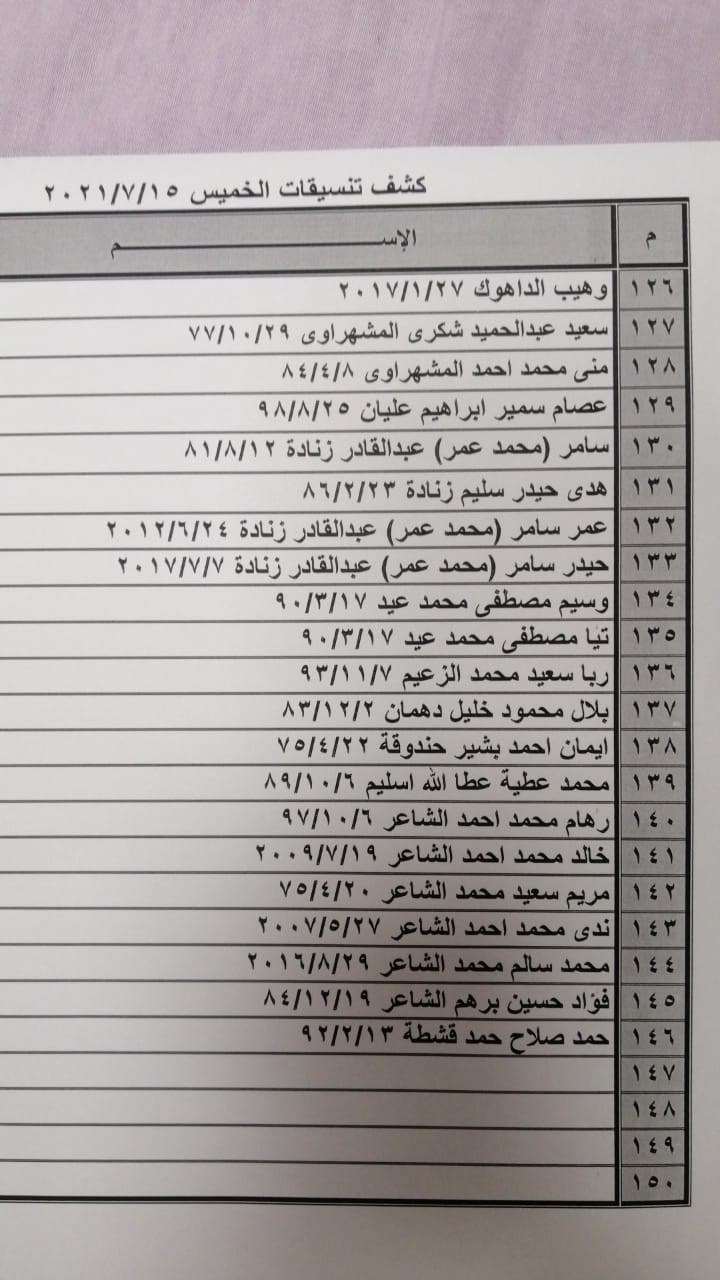 كشف تنسيقات الخميس ٢٠٢١/٧/١٥
م الإســـــــــــــــــم
١٢٦ وهيب الداهوك ٢٠١٧/١/٢٧
١٢٧ سعيد عبدالحميد شكرى المشهراوى ٧٧/١٠/٢٩
١٢٨ منى محمد احمد المشهراوى ٨٤/٤/٨
١٢٩ عصام سمير ابراهيم عليان ٩٨/٨/٢٥
١٣٠ سامر (محمد عمر) عبدالقادر زنادة ٨١/٨/١٢
١٣١ هدى حيدر سليم زنادة ٨٦/٢/٢٣
١٣٢ عمر سامر (محمد عمر) عبدالقادر زنادة ٢٠١٢/٦/٢٤
١٣٣ حيدر سامر (محمد عمر) عبدالقادر زنادة ٢٠١٧/٧/٧
١٣٤ وسيم مصطفى محمد عيد ٩٠/٣/١٧
١٣٥ تيا مصطفى محمد عيد ٩٠/٣/١٧
١٣٦ ربا سعيد محمد الزعيم ٩٣/١١/٧
١٣٧ بلال محمود خليل دهمان ٨٣/١٢/٢
١٣٨ ايمان احمد بشير حندوقة ٧٥/٤/٢٢
١٣٩ محمد عطية عطا الله اسليم ٨٩/١٠/٦
١٤٠ رهام محمد احمد الشاعر ٩٧/١٠/٦
١٤١ خالد محمد احمد الشاعر ٢٠٠٩/٧/١٩
١٤٢ مريم سعيد محمد الشاعر ٧٥/٤/٢٠
١٤٣ ندى محمد احمد الشاعر ٢٠٠٧/٥/٢٧
١٤٤ محمد سالم محمد الشاعر ٢٠١٦/٨/٢٩
١٤٥ فؤاد حسين برهم الشاعر ٨٤/١٢/١٩
١٤٦ حمد صلاح حمد قشطة ٩٢/٢/١٣
١٤٧
١٤٨
١٤٩
١٥٠